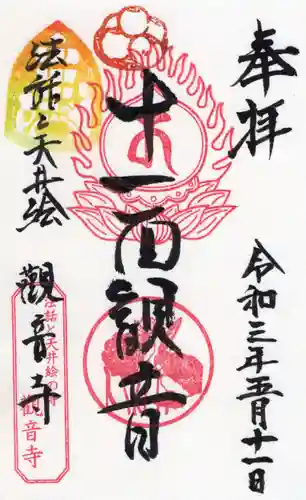 奉拝
令和三年五月十一日
十一面観音
法話と天井絵
觀音寺
法話と天井絵の
観音寺